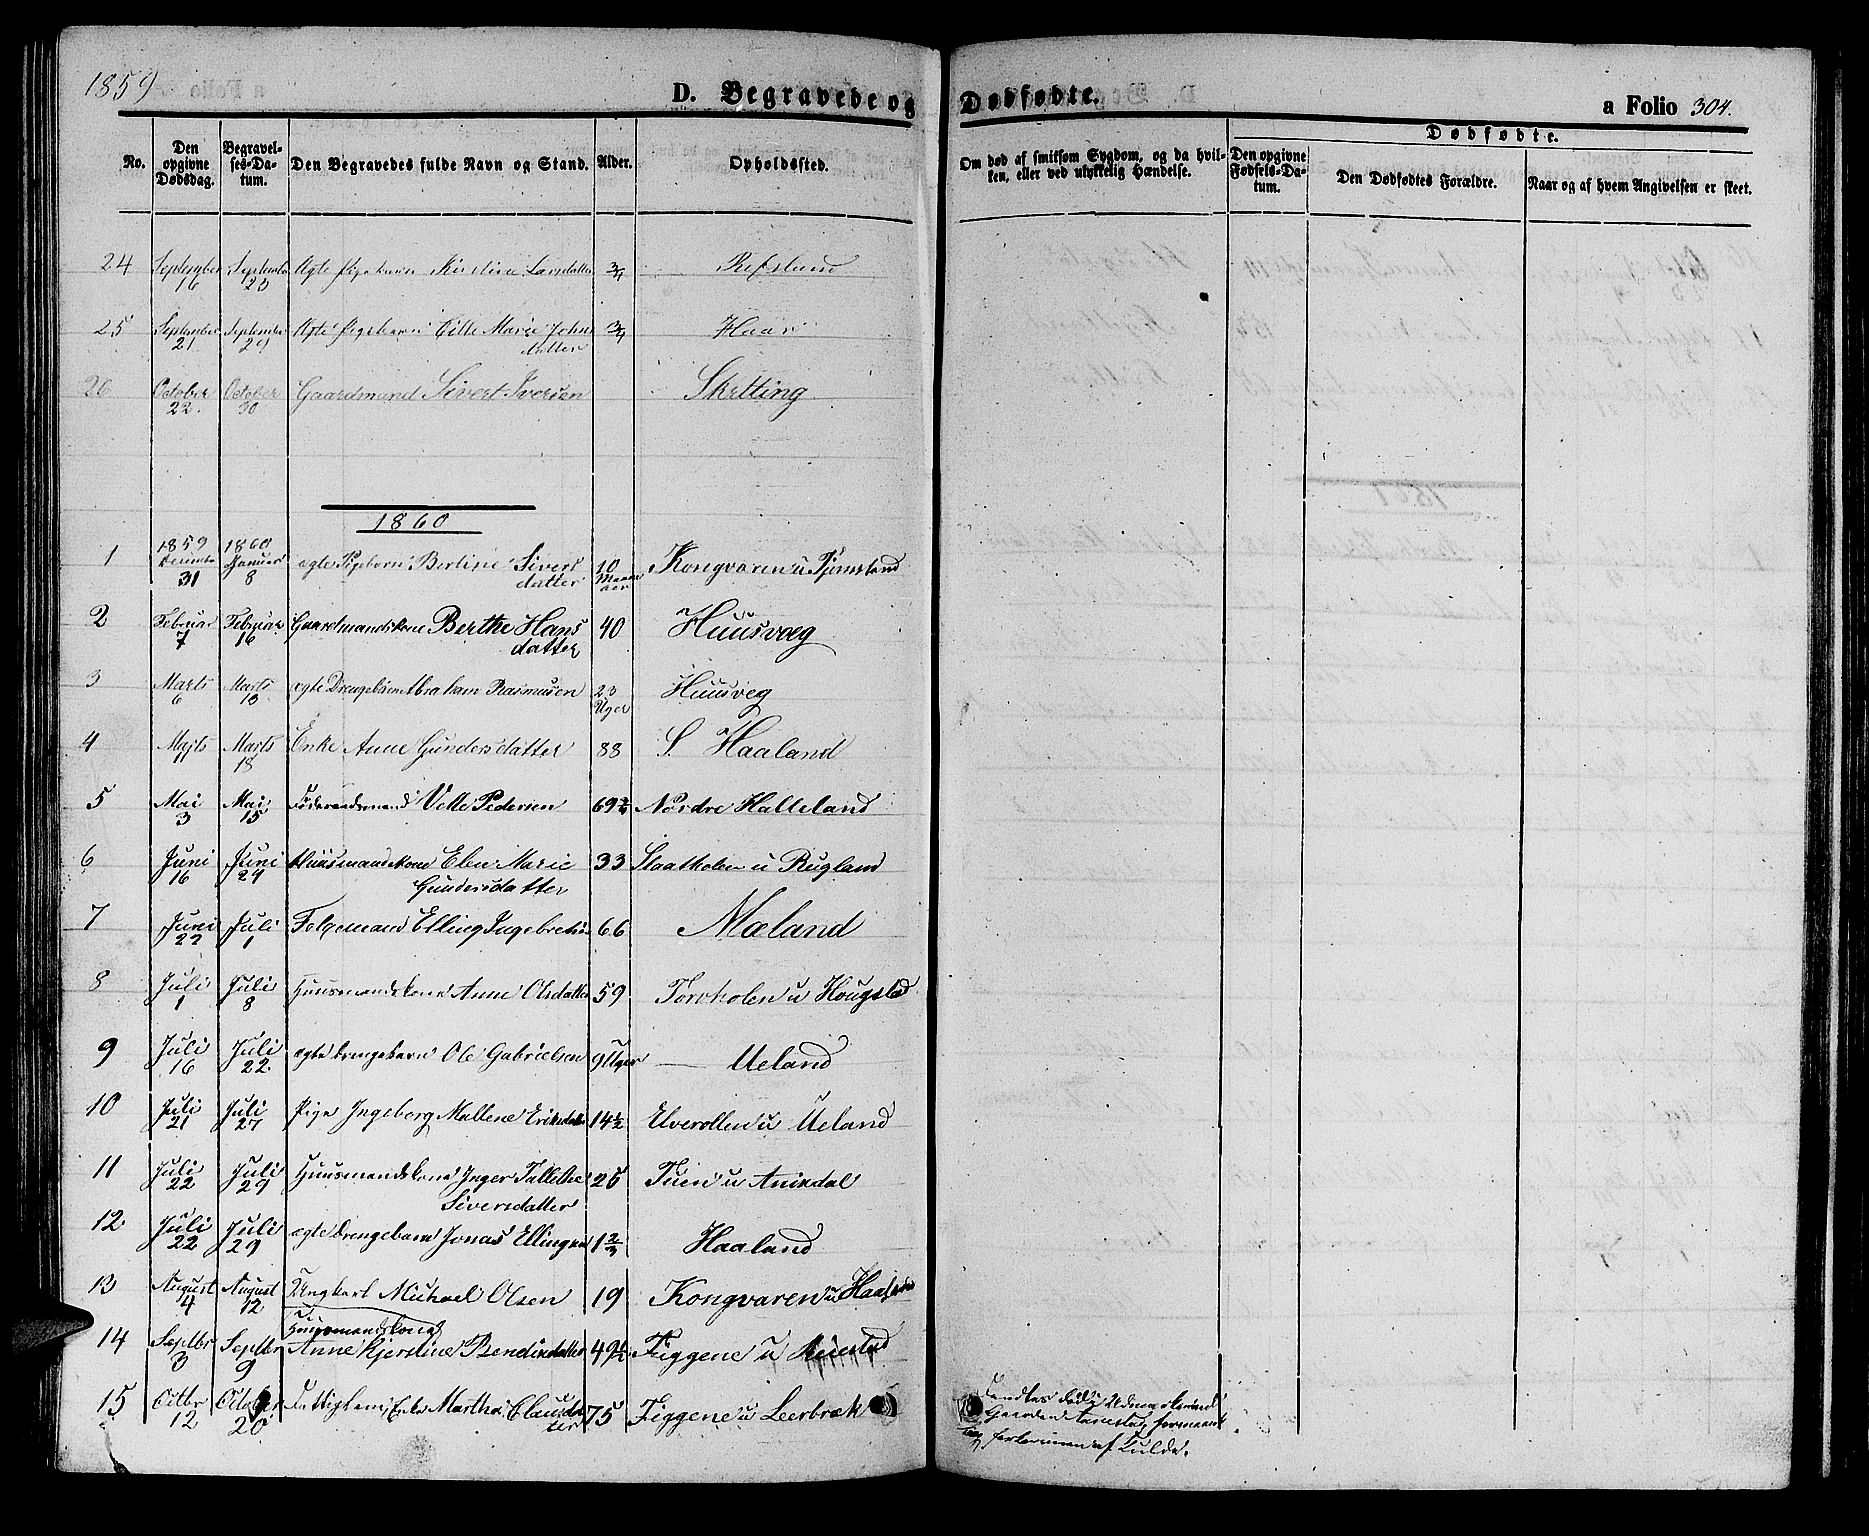 1859
D. Begravede og Dødfødte.
a Folio 304.
No.
Den opgivne Dødsdag.
Begravelses-Datum.
Den Begravedes fulde Navn og Stand.
Alder.
Opholdssted.
Om død af smitsom Sygdom, og da hvilken, eller ved ulykkelig Hændelse.
Dødfødte.
Den opgivne Fødsels-Datum.
Den Dødfødtes Forældre.
Naar og af hvem Angivelsen er skeet.
24 September 16 Septembr 23 Ægte Pigebarn Kirstine Larsdatter 3/4 Refsland
25 September 21 September 29 Ægte Pigebarn Marie Johns datter 3/4 Haar
26 October 22. October 30 Gaardmand Sivert Iversen Skretting
1860
1 1859 December 31 1860 Januar 8 ægte Pigebarn Bertine Siverts datter 10 Maaneder Kongvaren u
2 Februar 7 Februar 16 Gaardmandskone Berthe Hans datter 40 Huusvæg
3 Marts 6 Marts 13 ægte Drengebarn Abraham Rasmussen 23 Uger Huusveg
4 Marts 11 Marts 18 Enke Anne Gundersdatter 88 S. Haaland
5 Mai 3 Mai 15 Føderaadsmand Velle Pedersen 69 Nordre Halleland
6 Juni 16 Juni 24 Huusmandskone Elen Marie Gundersdatter 33 Slaatholen u Rugland
7 Juni 22 Juli 1 Folgemand Elling Ingebretsen 66 Mæland
8 Juli 1 Juli 8 Huusmandskone Anne Olsdatter 59 Torvholen u Hougstad
9 Juli 16 Juli 22 ægte Drengebarn Ole Gabrielsen 9 Uger Ueland
10 Juli 21 Juli 27 Pige Ingeborg Mallene Eriksdatter 14 1/2 u Ueland
11 Juli 22 Juli 29 Huusmandskone Inger Tallethe Siversdatter 25 Tuen u Anisdal
12 Juli 22 Juli 29 ægte Drengebarn Jonas Ellingsen 1 2/3 Haaland
13 August 4 August 12 Ungkarl Michael Olsen 19 Kongvaren u Haaland
14 Septbr 3 Septbr 9 Huusmandskone Anne Kjerstine Bendixdatter 49 1/2 Figgene u
15 Octbr 12 October 20 Fattiglem, Enke Martha Clausdatter 75 Figgene u Leerbræk
Fandtes død i Udmarken ved
Gaarden formeent
forkommen af Kulde.